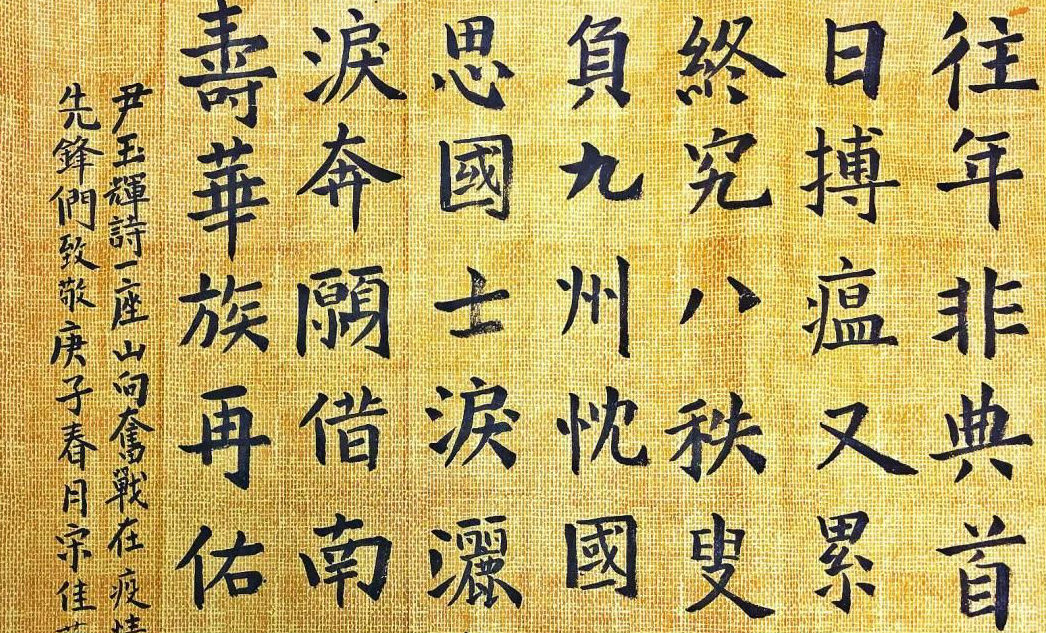 往年非典首
日搏瘟又累
終究八秩叟
負九州忱國
思國士淚灑
淚奔願借南
壽華族再佑
尹玉輝詩一座山向奮戰在疫情
先鋒們致敬庚子春月宋佳